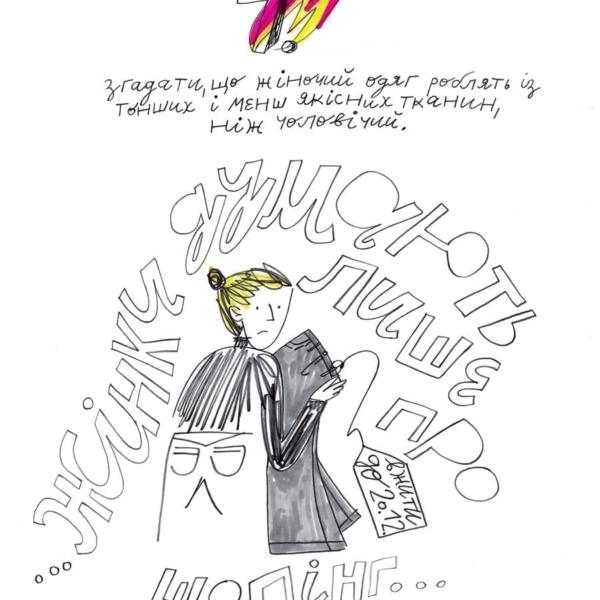 згадати, що жіночий одяг роблять із
тонших і менш якісних тканин,
ніж чоловічий.
...жінки думають
лише про
вжити
до 20.12
шопінг...